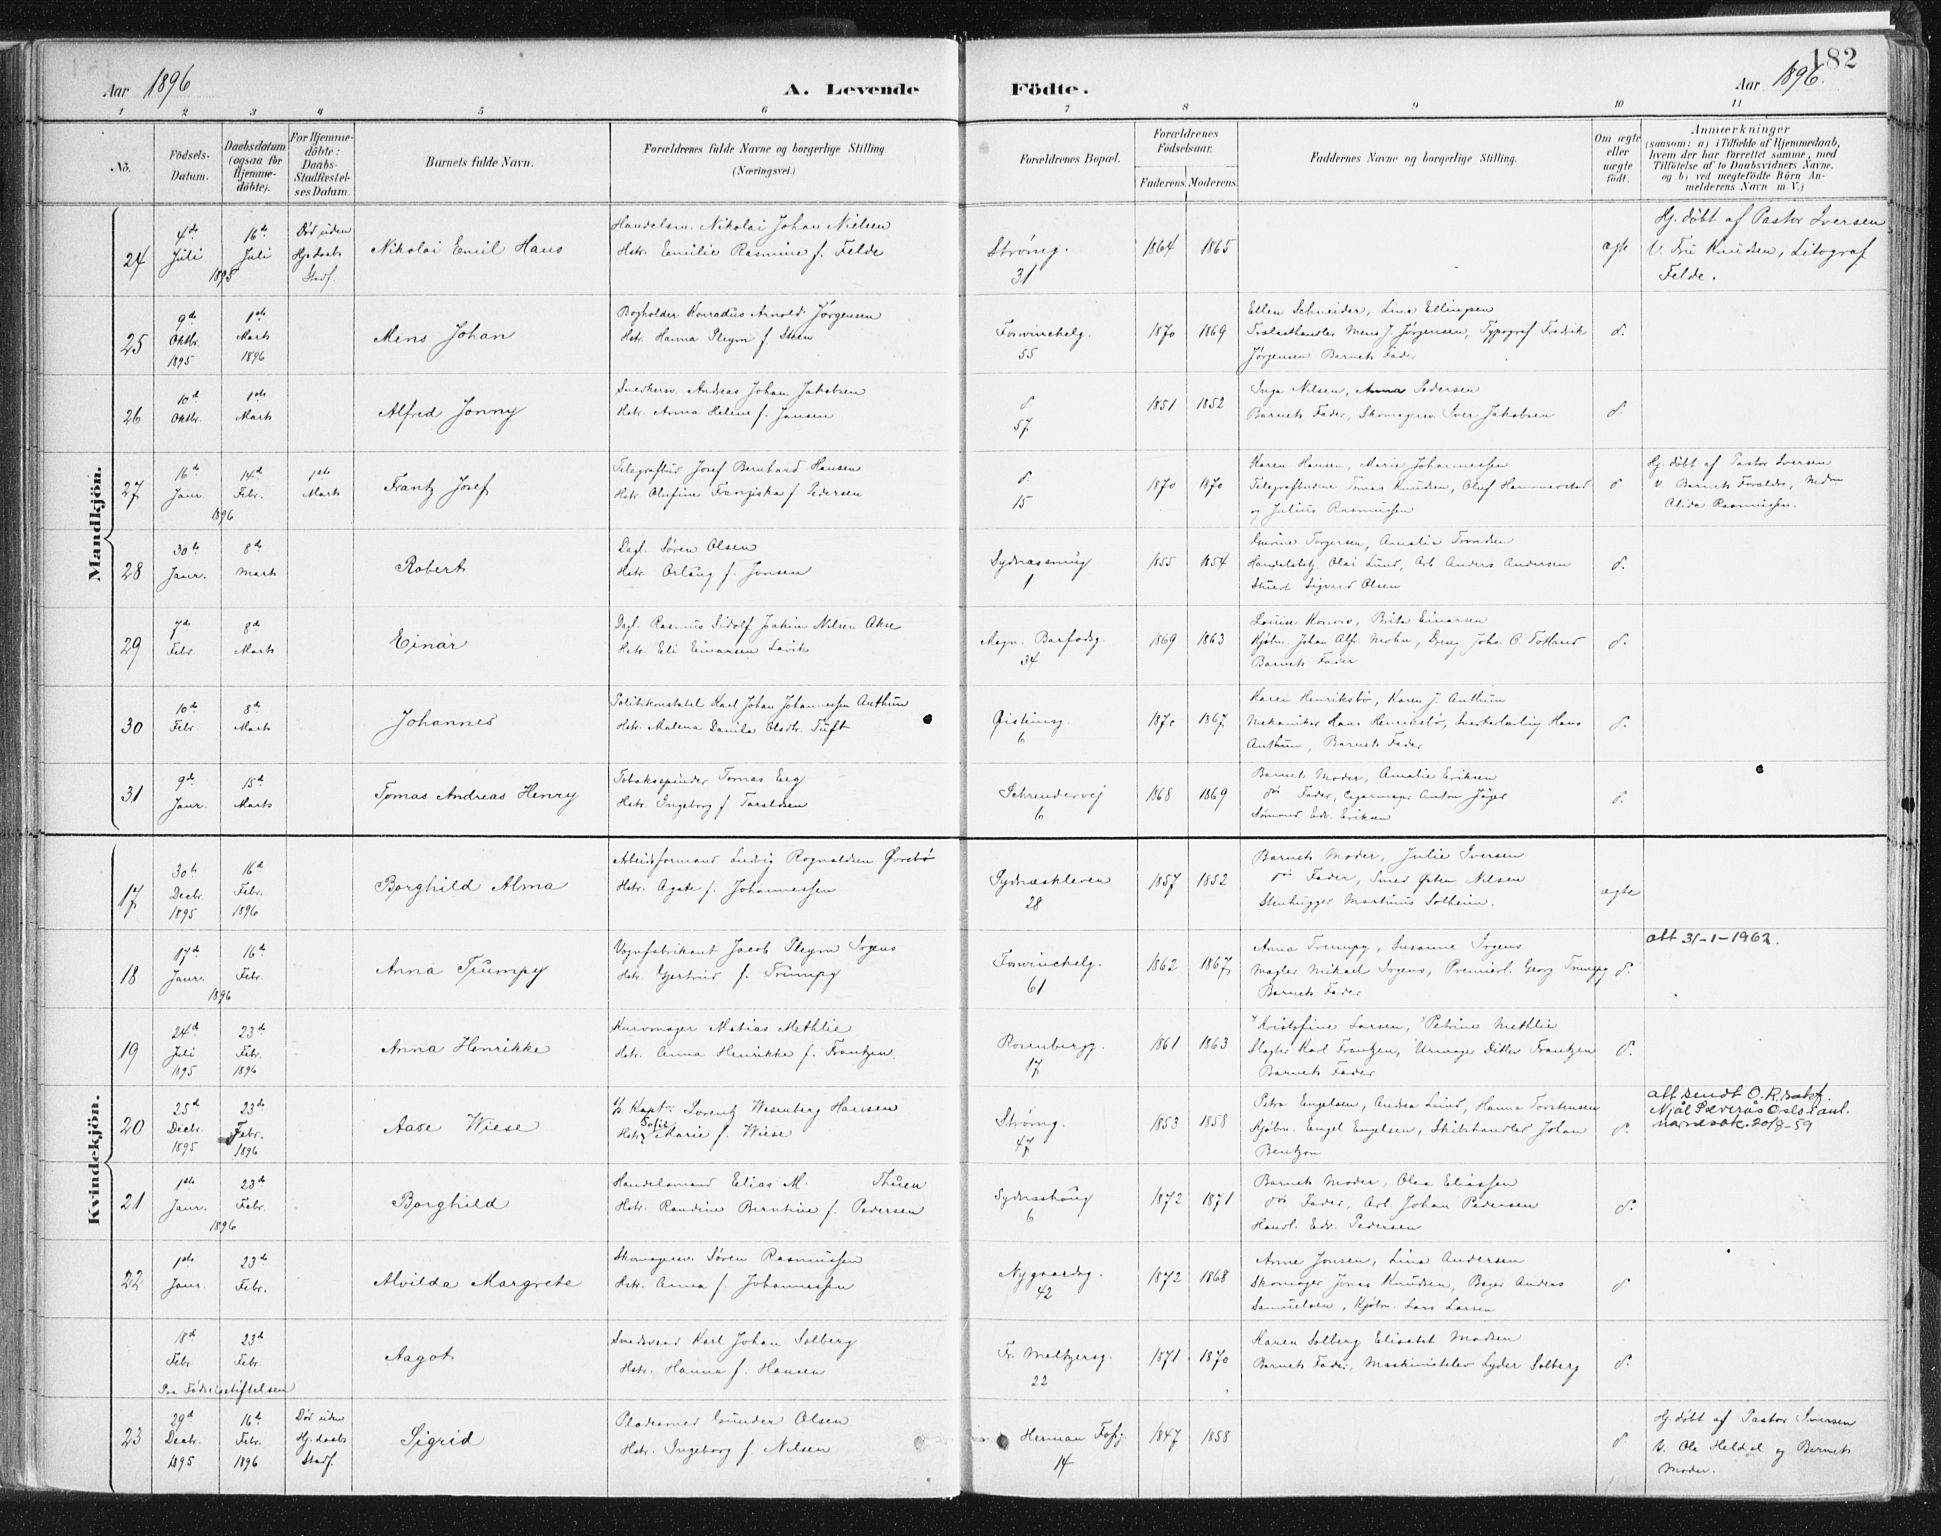 182
Aar 1896
A. Levende
Födte.
Aar 1896.
1 2 3 4 5 6 7 8 9 10 11
No.
Födsels-Datum.
Daabsdatum (ogsaa for Hjemme-döbte).
For Hjemme-döbte: Daabs-Stadfæstel-ses Datum.
Barnets fulde Navn.
Forældrenes fulde Navne og borgerlige Stilling (Næringsvei.)
Forældrenes Bopæl.
Forældrenes Födselsaar.
Faderens. Moderens.
Faddernes Navne og borgerlige Stilling.
Om ægte eller uægte födt.
Anmærkninger
(saasom: a) i Tilfælde af Hjemmedaab, hvem der har forrettet samme, med Tilföielse af to Daabsvidners Navne, og b) ved uægtefödte Börn An-melderens Navn m. V.)
Mandkjön.
24 4de Juli 1895 16de Juli Död uden Hj.daabs Stadf. Nikolai Emil Hans
Handelsm. Nikolai Johan Nielsen
Hstr. Emilie Rasmine f. Felde
Strömg. 31 1864 1865 ægte
Hj. döbt af Pastor Iversen
V. Fru Knudsen, Litograf
Felde.
25 9de Oktbr. 1895 1ste Marts 1896 Mens Johan
Bogholder Konradus Arnold Jörgensen
Hstr. Hanna Pleym f. Steen
Forvinchelg. 55 1870 1869
Ellen Schneider, Lina Ellingsen
Trælasthandler Mens J. Jörgensen, Typograf Fredrik
Jörgensen Barnets Fader
do.
26 10d Oktbr. 1ste Marts Alfred Jonny
Snedkersv. Andreas Johan Jakobsen
Hstr. Anna Helene f. Jansen
do 57 1851 1852
Inga Nilsen, Anna Pedersen
Barnets Fader, Skomagersv. Iver Jakobsen
do.
27 16de Janr. 1896 14d Febr. 1ste Marts Frantz Josef
Telegrafbud Josef Bernhard Hansen
Hstr. Olufine Franziska f. Pedersen
do 15 1870 1870
Karen Hansen, Marie Johannessen
Telegrafbudene Tomas Knudsen, Oluf Hammerstad
og Julius Rasmussen
do
Hj. döbt af Pastor Iversen
v. Barnets Forældre,
Alida Rasmussen.
28 30te Janr. 8de Marts Robert
Dagl. Sören Olsen
Hstr. Orlaug f. Jonsen
Sydnæssmug 1 1855 1854
Gurine Torgersen, Amalia Tronsen
Handelsbetj. Olai Lund, Arb. Anders Andersen
Stuert Sigvard Olsen
do.
29 7de Febr. 8de Marts Einar
Dagl. Rasmus Sidolf Joakim Nilsen Akse
Hstr. Eli Einarsen Lavik
Magn. Barfodsg. 34 1869 1863
Louise Konow, Brita Einarsen
Kjöbm. Johan Alfr. Mohn, Dreng Johs. O. Totland
Barnets Fader
do.
30 10de Febr. 8de Marts Johannes
Politikonstabel Karl Johan Johannessen Anthun
Hstr. Malena Danila Olsdtr. Tuft
Øistensg. 6 1870 1867
Karen Henriksbö, Karen J. Anthun
Mekaniker Hans Henriksbö, Hans
Anthun, Barnets Fader
do.
31 9de Janr. 15de Marts Tomas Andreas Henry
Tobaksspinder Tomas Eeg
Hstr. Ingeborg f. Taraldsen
Schrendervej 6 1868 1869
Barnets Moder, Amalie Eriksen
do Fader, Cigarmager Anton Jäger
Sömand Edv. Eriksen
do.
Kvindekjön.
17 30te Decbr. 1895 16de Febr. 1896 Borghild Alma
Arbeidsformand Ludvig Rognaldsen Övrebö
Hstr. Agate f. Johannessen
Sydnæskleven 28 1857 1852
Barnets Moder, Julie Iversen
do Fader, Smed Østen Nilsen
Stenhugger Martinus Solheim.
ægte
18 17de Janr. 1896 16de Febr. Anna Trumpy
Vognfabrikant Jacob Pleym Irgens
Hstr. Gjertrud f. Trumpy
Forvinchelg. 61 1862 1867
Anna Trumpy, Susanne Irgens
Mægler Mikael Irgens, Premierl. Georg Trumpy
Barnets Fader
do.
att 31-1-1962.
19 24d Juli 1895 23d Febr. 1896 Anna Henrikke
Kurvmager Matias Methlie
Hstr. Anna Henrikke f. Frantzen.
Rosenbergg. 17 1861 1863
Kristofine Larsen, Petrine Methlie
Slagter Karl Frantzen, Urmager Ditlev Frantzen
Barnets Fader
do.
20 25d Decbr. 1895 23de Febr. 1896 Aase Wiese
Kapt. Lorentz Wesenberg Hansen
Hstr. Sofie Marie f. Wiese
Strömg. 47 1853 1858
Petra Engelsen, Andrea Lund, Hanna Torstensen
Kjöbm. Engel Engelsen, Skibshandler Johan
Bentzon
do.
att sendt O.R.sakf.
Njål Sæverås Oslo i anl.
navnesak. 20/8-59
21 1ste Janr. 1896 23de Febr. Borghild
Handelsmand Elias M. Thuen
Hstr. Randine Berntine f. Pedersen
Sydnæshaug 6 1872 1871
Barnets Moder, Olea Eliassen
do Fader, Arb. Johan Pedersen
Handl. Edv. Pedersen
do.
22 1ste Janr. 23de Febr. Alvilda Margrete
Skomagersv. Sören Rasmussen
Hstr. Anna f. Johannessen
Nygaardsg. 42 1872 1868
Anne Jonsen, Lina Andersen
Skomager Jonas Knudsen, Bager Andreas
Samuelsen, Kjöbm. Lars Larsen
do
18d Febr. 23de Febr. Aagot
Paa Födselsstiftelsen
Smedsvend Karl Johan Solberg
Hstr. Hanna f. Hansen
Fr. Meltzersg. 22 1871 1870
Karen Solberg Elisabet Madsen
Barnets Fader, Maskinistelev Lyder Solberg
do.
23 29d Decbr. 1895 16de Febr. 1896 Död uden Hj. daabs Stadf. Sigrid
Pladesmed Gunder Olsen
Hstr. Ingeborg f. Nilsen
Herman Fossg. 14 1847 1858 do
Hj. döbt af Pastor Iversen
V. Ole Heldal og Barnets
Moder.